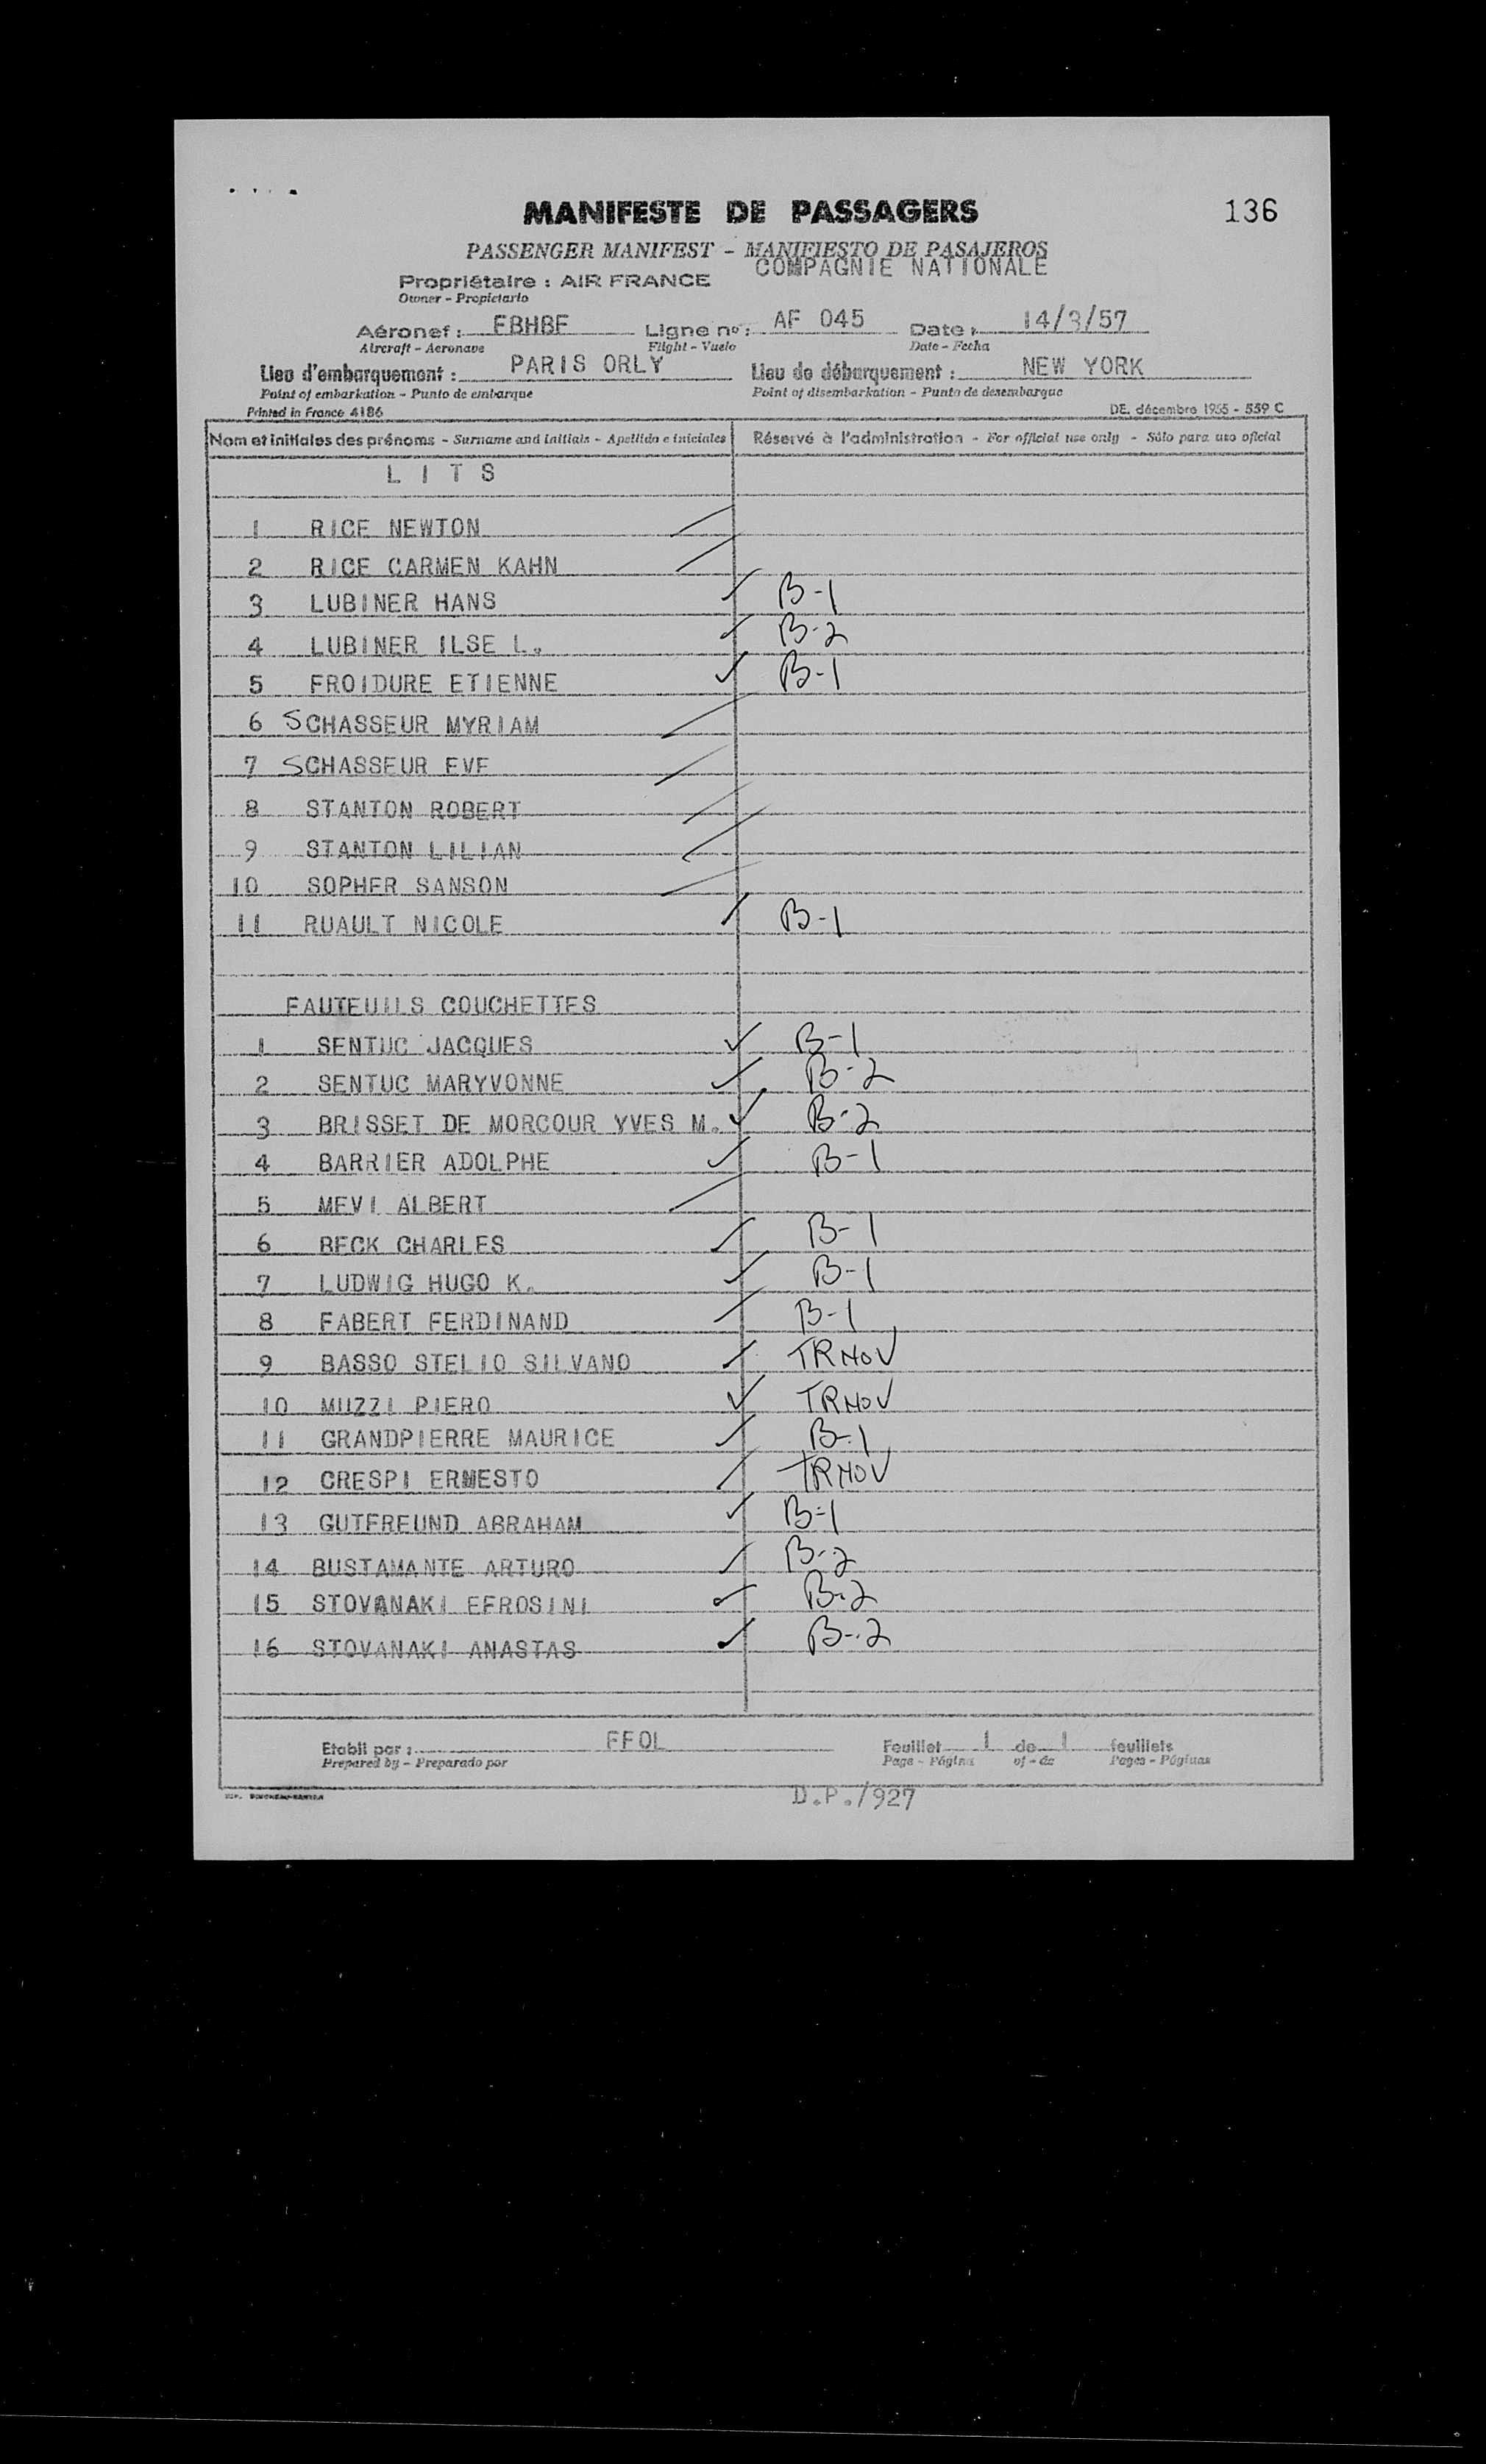 MANIFESTE DE PASSAGERS
136
PASSENGER MANIFEST - MANIFIESTO DE PASAJEROS
COMPAGNIE NATIONALE
Propriétaire : AIR FRANCE
Owner - Propietario
Aéronef : FBHBF Ligne no : AF 045 Date : 14/3/57
Aircraft - Aeronave Flight - Vuelo Date - Fecha
Lieu d'embarquement : PARIS ORLY Lieu de débarquement : NEW YORK
Point of embarkation - Punto de embarque Point of disembarkation - Punto de desembarque
Printed in France 4186 DE. décembre 1955 - 559 C
Nom et initiales des prénoms - Surname and initials - Apellido e iniciales Réservé à l'administration - For official use only - Sólo para uso oficial
L I T S
1 RICE NEWTON
2 RICE CARMEN KAHN
3 LUBINER HANS B-1
4 LUBINER ILSE L. B-2
5 FROIDURE ETIENNE B-1
6 SCHASSEUR MYRIAM
7 SCHASSEUR EVE
8 STANTON ROBERT
9 STANTON LILIAN
10 SOPHER SANSON
11 RUAULT NICOLE B-1
FAUTEUILS COUCHETTES
1 SENTUC JACQUES B-1
2 SENTUC MARYVONNE B-2
3 BRISSET DE MORCOUR YVES M. B-2
4 BARRIER ADOLPHE B-1
5 MEVI ALBERT
6 BECK CHARLES B-1
7 LUDWIG HUGO K. B-1
8 FABERT FERDINAND B-1
9 BASSO STELIO SILVANO TRNOV
10 MUZZI PIERO TRNOV
11 GRANDPIERRE MAURICE B-1
12 CRESPI ERNESTO TRNOV
13 GUTFREUND ABRAHAM B-1
14 BUSTAMANTE ARTURO B-2
15 STOVANAKI EFROSINI B-2
16 STOVANAKI ANASTAS B-2
Etabli par : FFOL Feuillet 1 de 1 feuillets
Prepared by - Preparado por Page - Página of - de Pages - Páginas
D.P./927